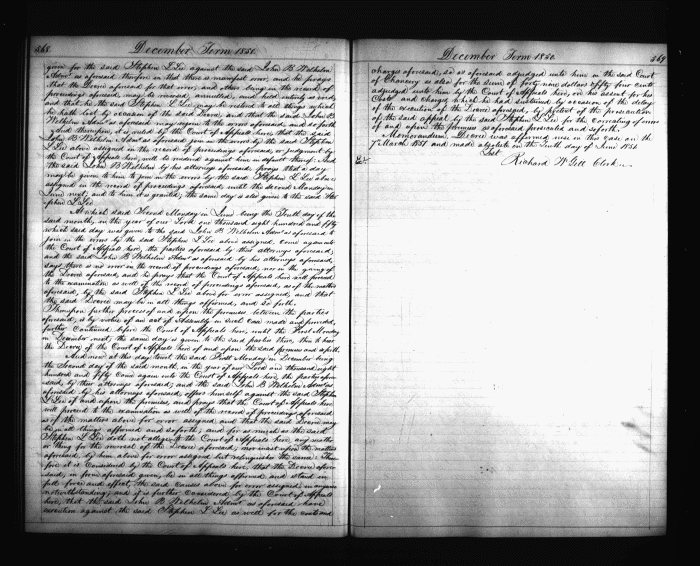 568.
December Term 1850.
given for the said Stephen L Lee against the said John B Wilhelm
Admr as aforesaid therefore in that there is manifest error, and he prays
that the Decree aforesaid for that error, and others being in the record of
proceedings aforesaid may be reversed, annulled and held entirely as void
and that he the said Stephen L Lee, may be restored to all things which
he hath lost by occasion of the said Decree, and that the said John B
Wilhelm Admr as aforesaid may rejoin to the errors aforesaid and so forth
and thereupon, it is ruled by the Court of Appeals here, that the said
John B Wilhelm Admr as aforesaid join in the errors by the said Stephen
L Lee above assigned in the record of proceedings aforesaid, or judgment by
the Court of Appeals here, will be rendered against him in default thereof: And
the said John B Wilhelm by his attorneys aforesaid, prays that a day
may be given to him to join in the errors by the said Stephen L Lee above
assigned in the record of proceedings aforesaid until the second Monday in
June next; and to him it is granted; the same day is also given to the said Ste-
phen L Lee.
At which said Second Monday in June being the Tenth day of the
said month, in the year of our Lord one thousand eight hundred and fifty
which said day was given to the said John B Wilhelm Admr as aforesaid to
join in the errors by the said Stephen L Lee above assigned, come again into
the Court of Appeals here, the parties aforesaid by their attorneys aforesaid;
and the said John B Wilhelm Admr as aforesaid by his attorneys aforesaid,
says there is no error in the record of proceedings aforesaid, nor in the giving of
the Decree aforesaid, and he prays that the Court of Appeals here will proceed
to the examination as well of the record of proceedings aforesaid, as of the matters
aforesaid, by the said Stephen L Lee above for error assigned, and that
the said Decree may be in all things affirmed, and so forth.
Whereupon further process of and upon the premises between the parties
aforesaid, is by virtue of an act of Assembly in such case made and provided,
further Continued before the Court of Appeals here, until the First Monday
in December next, the same day is given to the said parties there, then to hear
the Decree of the Court of Appeals here of and upon the said premises and so forth.
And now at the day to wit the said First Monday in December being
the second day of the said month, in the year of our Lord one thousand eight
hundred and fifty Come again into the Court of Appeals here, the parties afore-
said, by their attorneys aforesaid; and the said John B Wilhelm Admr as
aforesaid by his attorneys aforesaid, offers himself against the said Stephen
L Lee of and upon the premises, and prays that the Court of Appeals here
will proceed to the examination as well of the record of proceedings aforesaid
as of the matters above for error assigned, and that the said Decree may
be in all things affirmed and so forth; and for as much as the said
Stephen L Lee doth not allege to the Court of Appeals here, any matter
or thing for the reversal of the Decree aforesaid, nor insist upon the matters
aforesaid, by him above for error assigned but relinquishes the same: There-
fore it is Considered by the Court of Appeals here, that the Decree afore-
said, in form aforesaid given, be in all things affirmed and stand in
full force and effect, the said causes above for error assigned in any wise
notwithstanding; and it is further Considered by the Court of Appeals
here, that the said John B Wilhelm Admr as aforesaid have
execution against the said Stephen L Lee as well for the costs and
December Term 1850.
569
charges aforesaid, so as aforesaid adjudged unto him in the said Court
of Chancery as also for the sum of forty nine dollars &fifty four cents
adjudged unto him by the Court of Appeals here, on his assent for his
Costs and Charges which he had sustained by occasion of the delay
of the execution of the Decree aforesaid, by pretext of the prosecution
of the said appeal by the said Stephen L Lee for the correcting of errors
of and upon the premises as aforesaid prosecuted and so forth.
Memorandum. Decree was affirmed nisi in this case on the
7 March 1851 and made absolute on the Tenth day of June 1851.
Test
Richard W Gill Clerk
Ex'd.